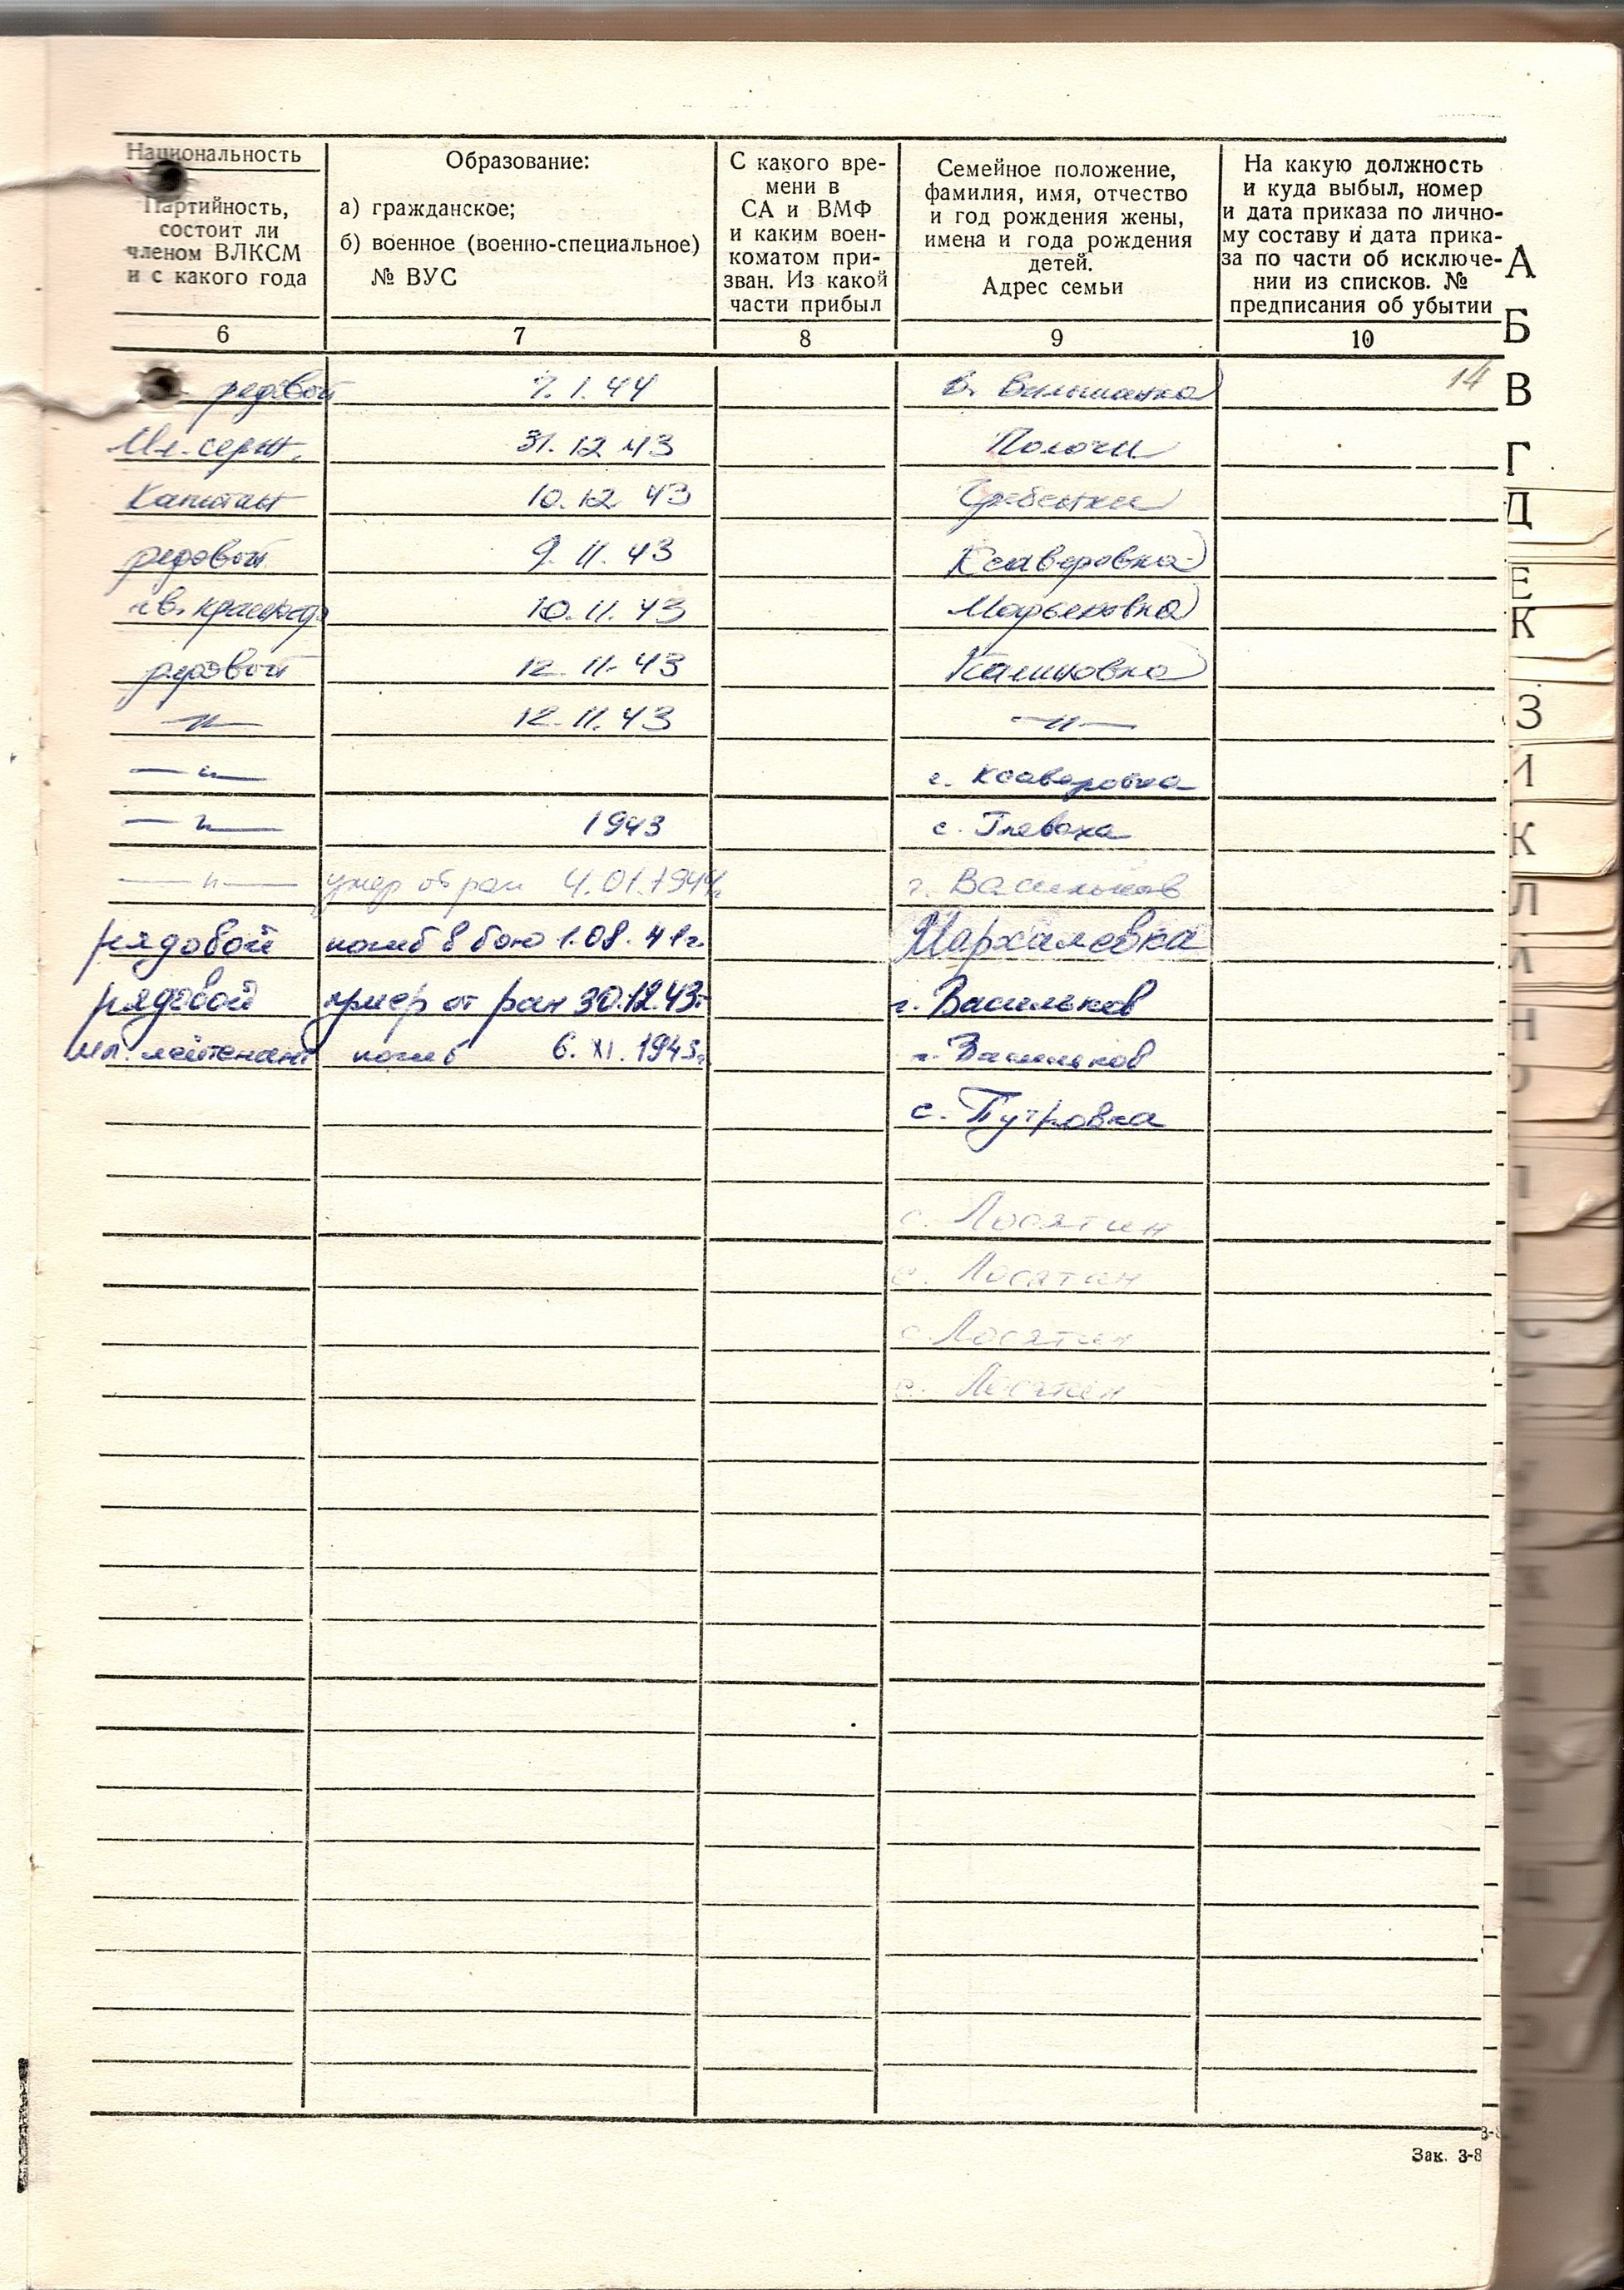 Национальность
Партийность,
состоит ли
членом ВЛКСМ
и с какого года
Образование:
а) гражданское;
б) военное (военно-специальное)
№ ВУС
С какого вре-
мени в
СА и ВМФ
и каким воен-
коматом при-
зван. Из какой
части прибыл
Семейное положение,
фамилия, имя, отчество
и год рождения жены,
имена и года рождения
детей.
Адрес семьи
На какую должность
и куда выбыл, номер
и дата приказа по лично-
му составу и дата прика-
за по части об исключе-
нии из списков. №
предписания об убытии
6 7 8 9 10
рядовой 7.1.44 14
Мл. серж. 31.12 43 Пологи
Капитан 10.12 43 Гребенки
рядовой 9.11.43 Ксаверовка
гв. 10.11.43 Марьяновка
рядовой 12.11.43 Калиновка
—"— 12.11.43 —"—
—"— с. Ксаверовка
—"— 1943 с. Глеваха
—"— умер от ран 4.01.1944г. г. Васильков
рядовой погиб в бою 1.08.41г. Мархалевка
рядовой умер от ран 30.12.43г. г. Васильков
мл. лейтенант погиб 6.XI.1943г. г. Васильков
с. Путровка
с. Лосятин
с. Лосятин
с. Лосятин
с. Лосятин
Зак. 3-8
А
Б
В
Г
Д
Е
К
З
И
К
Л
Н